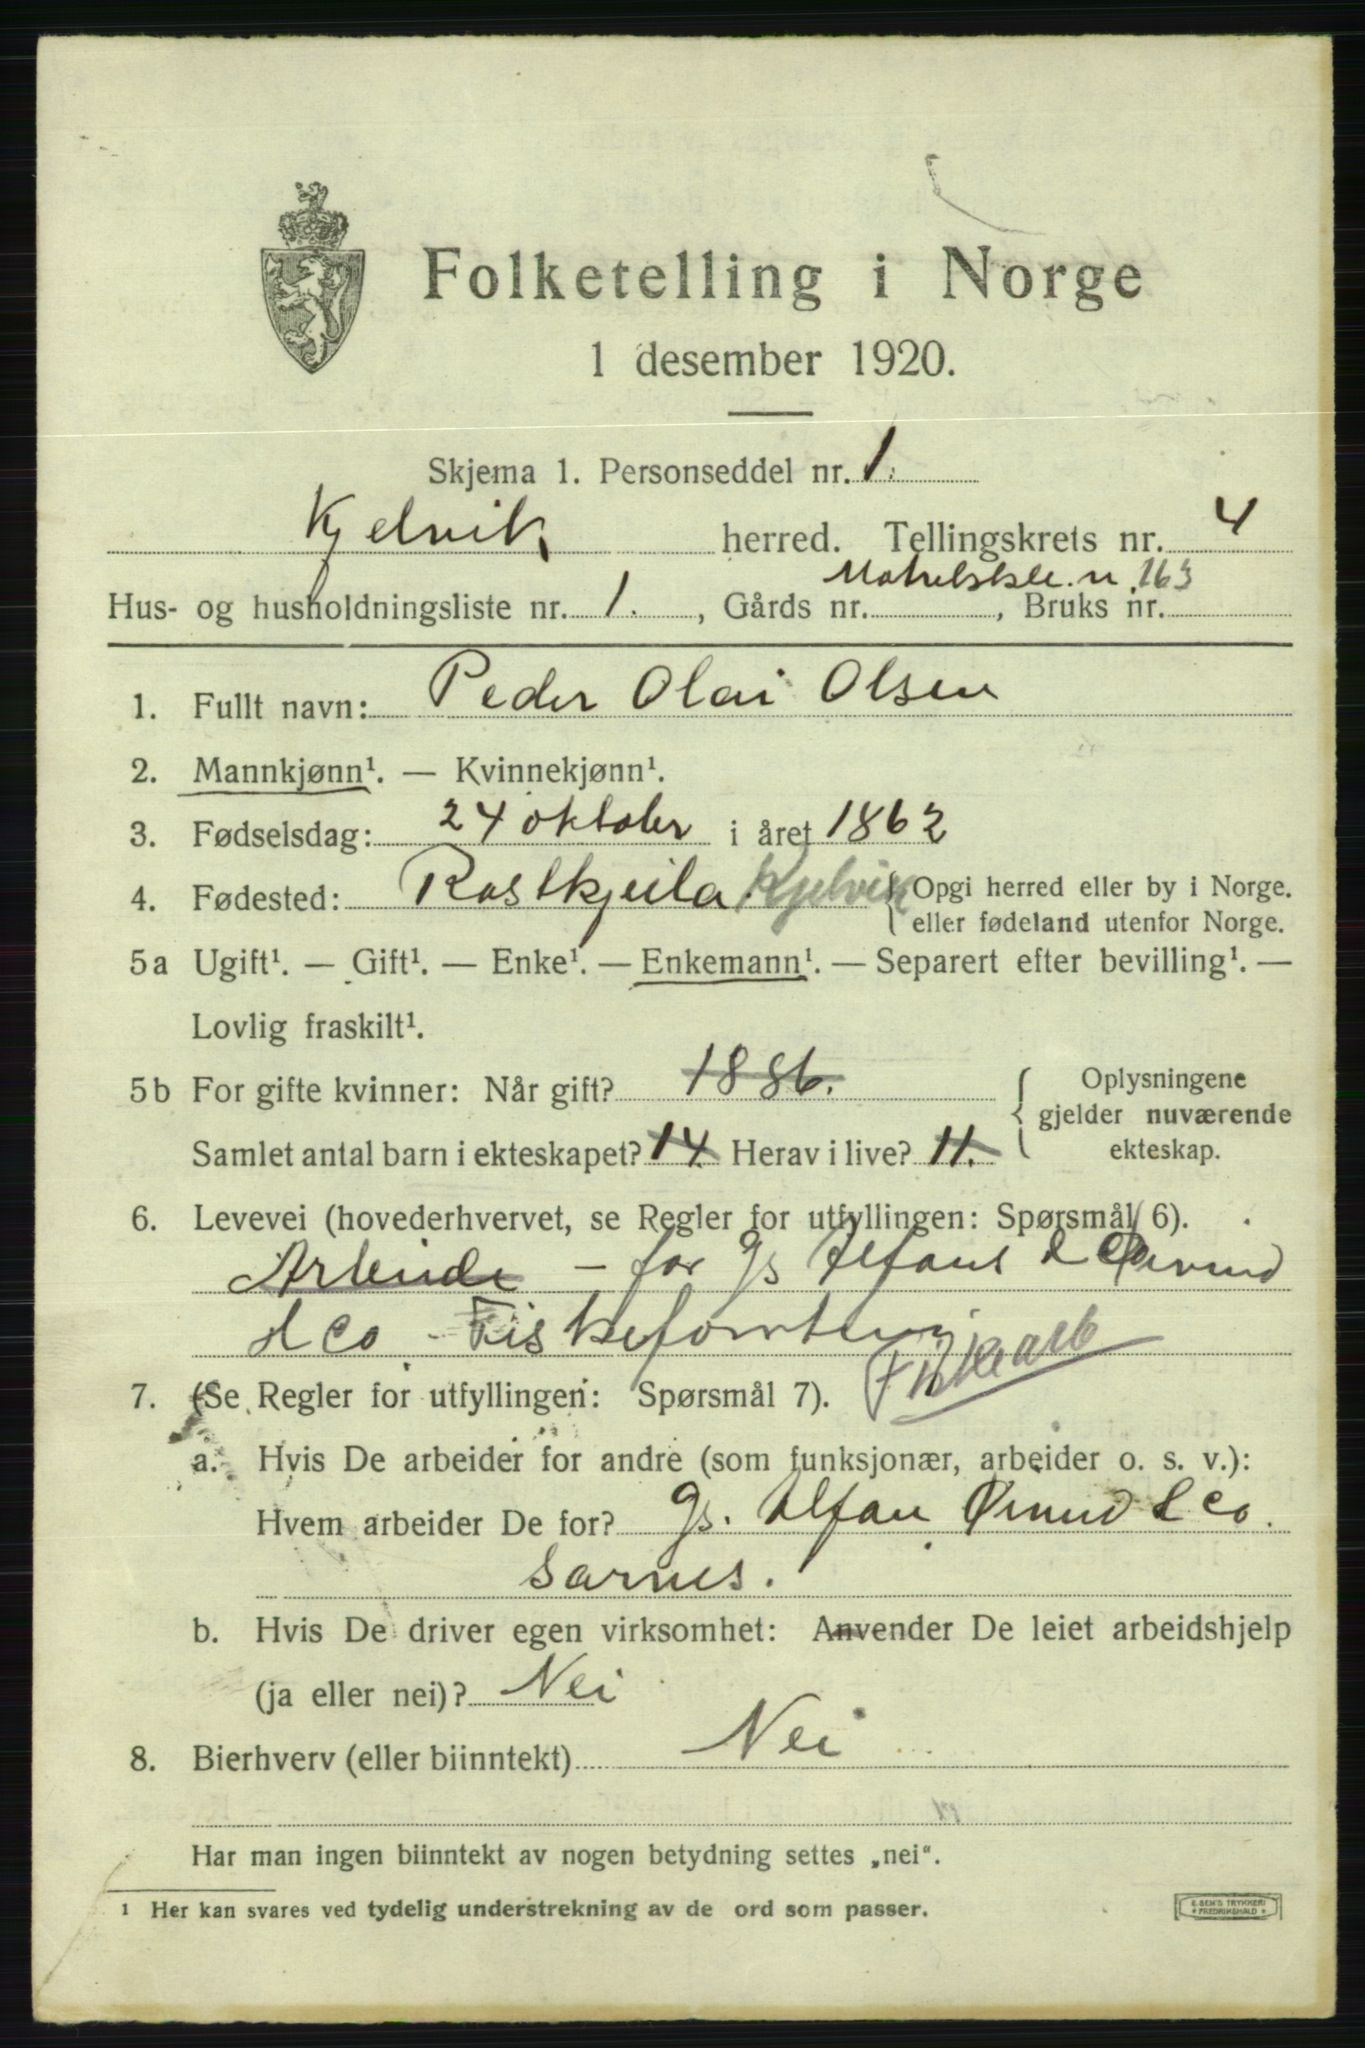 Folketelling i Norge
1 desember 1920.
Skjema 1. Personseddel nr. 1.
Kjelvik herred. Tellingskrets nr. 4
Matrikkle. n 163
Hus- og husholdningsliste nr. 1. , Gårds nr. , Bruks nr.
1. Fullt navn: Peder Olai Olsen
2. Mannkjønn¹. — Kvinnekjønn¹.
3. Fødselsdag: 24 oktober i året 1862
4. Fødested: Rastkjeila Kjelvik { Opgi herred eller by i Norge.
eller fødeland utenfor Norge.
5a Ugift¹. — Gift¹. — Enke¹. — Enkemann¹. — Separert efter bevilling¹. —
Lovlig fraskilt¹.
5b For gifte kvinner: Når gift? 1886. { Oplysningene
gjelder nuværende
Samlet antal barn i ekteskapet? 14. Herav i live? 11. ekteskap.
6. Levevei (hovederhvervet, se Regler for utfyllingen: Spørsmål 6).
Arbeide - for
& Co - Fiskeforretning
Fiskearb
7. (Se Regler for utfyllingen: Spørsmål 7).
a. Hvis De arbeider for andre (som funksjonær, arbeider o. s. v.):
Hvem arbeider De for? & Co.
Sarnes.
b. Hvis De driver egen virksomhet: Anvender De leiet arbeidshjelp
(ja eller nei)? Nei
8. Bierhverv (eller biinntekt) Nei
Har man ingen biinntekt av nogen betydning settes „nei“.
¹ Her kan svares ved tydelig understrekning av de ord som passer.
E. SEM'S TRYKKERI
* FREDRIKSHALD *